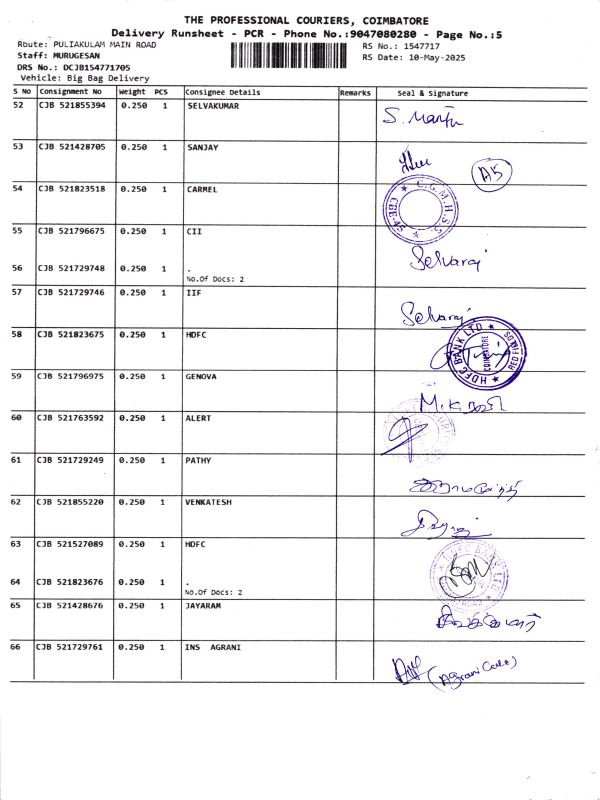 THE PROFESSIONAL COURIERS, COIMBATORE
Delivery Runsheet - PCR - Phone No.:9047080280 - Page No.:5
Route: PULIAKULAM MAIN ROAD
RS No.: 1547717
Staff: MURUGESAN
RS Date: 10-May-2025
DRS No.: DCJB154771705
Vehicle: Big Bag Delivery
S No Consignment No Weight PCS Consignee Details Remarks Seal & Signature
52 CJB 521855394 0.250 1 SELVAKUMAR
53 CJB 521428705 0.250 1 SANJAY
A5
54 CJB 521823518 0.250 1 CARMEL
C.G.M.H.S.S. CBE-45
55 CJB 521796675 0.250 1 CII
Selvaraj
56 CJB 521729748 0.250 1 .
No.Of Docs: 2
57 CJB 521729746 0.250 1 IIF
Selvaraj
58 CJB 521823675 0.250 1 HDFC
HDFC BANK LTD
COIMBATORE
59 CJB 521796975 0.250 1 GENOVA
60 CJB 521763592 0.250 1 ALERT
61 CJB 521729249 0.250 1 PATHY
62 CJB 521855220 0.250 1 VENKATESH
63 CJB 521527089 0.250 1 HDFC
64 CJB 521823676 0.250 1 .
No.Of Docs: 2
65 CJB 521428676 0.250 1 JAYARAM
66 CJB 521729761 0.250 1 INS AGRANI